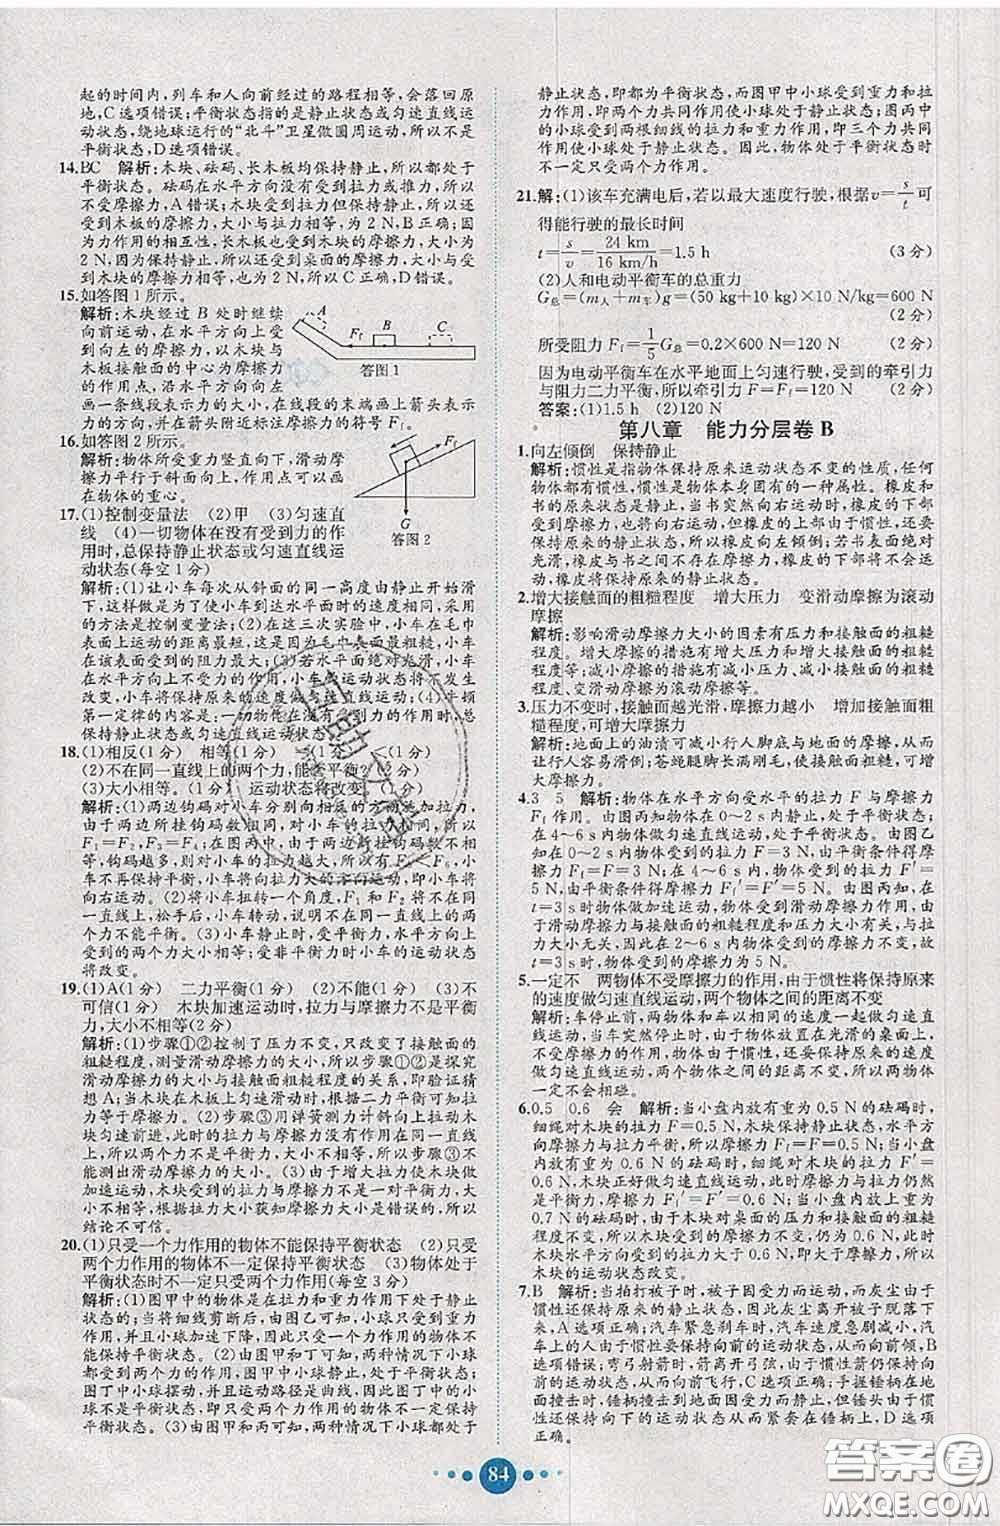 起的时间内,列车和人向前经过的路程相等,会落回原
地,C选项错误;平衡状态是指的是静止或匀速直线运
动状态,绕地球运行的“北斗”卫星做圆周运动,所以不是
平衡状态,D选项错误。
14.BC 解析:木块、砝码、长木板均保持静止,所以都处于
平衡状态。砝码在水平方向没有受到拉力或推力,所以
不受摩擦力,A错误;木块受到拉力但保持静止,所以还
受到木板的摩擦力,大小与拉力相等,为2 N,B正确;因
为力作用的相互性,长木板也受到木块的摩擦力,大小为
2 N,木板也保持静止,所以还受到桌面的摩擦力,大小与
受到木块的摩擦力相等,也为2 N,所以C正确,D错误。
15.如答图1所示。
解析:木块经过B处时继续
向前运动,在水平方向上受
到向左的摩擦力,以木块与
木板接触面的中心为摩擦力
的作用点,沿水平方向向左
画一条线段表示力的大小,在线段的末端画上箭头表示
力的方向,并在箭头附近标注摩擦力的符号Ff。
A
Ff
B
C
答图1
16.如答图2所示。
解析:物体所受重力竖直向下,滑动摩
擦力平行于斜面向上,作用点可以画
在物体的重心。
Ff
G
答图2
17.(1)控制变量法 (2)甲 (3)匀速直
线 (4)一切物体在没有受到力的作
用时,总保持静止状态或匀速直线运
动状态(每空1分)
解析:(1)让小车每次从斜面的同一高度由静止开始滑
下,这样做是为了使小车到达水平面时的速度相同,采用
的方法是控制变量法;(2)在这三次实验中,小车在毛巾
表面上运动的距离最短,这是因为毛巾表面最粗糙,小车
在表面受到的阻力最大;(3)若水平面绝对光滑,小车在
水平方向上不受力的作用,小车的运动状态将不会发生
改变,小车将保持原来的速度做匀速直线运动;(4)牛顿
第一定律的内容是:一切物体在没有受到力的作用时,总保
持静止状态或匀速直线运动状态。
18.(1)相反(1分) 相等(1分) =(1分) <(1分)
(2)不在同一直线上的两个力,能否平衡?(2分)
(3)大小相等。(1分) 运动状态将改变。(1分)
解析:(1)两边钩码对小车分别向相反的方向施加拉力,
由于两边所挂钩码数相同,对小车的拉力大小相等,所以
F₁=F₂;在图丙中,由于两边所挂的钩码数不相
等,钩码越多,则对小车的拉力越大,所以有F₁<F₂,小
车将向右运动。(2)将小车扭转一个角度,F₁和F₂不在同
一直线上,松手后,小车转动,说明不在同一直线上的两
个力不能平衡。(3)小车静止时,受平衡力,水平方向上受
到两个力大小相等;受非平衡力时小车的运动状态
将改变。
19.(1)A(1分) 二力平衡(1分) (2)不能(1分) (3)不
可信(1分) 木块加速运动时,拉力与摩擦力不是平衡
力,大小不相等(2分)
解析:(1)步骤①②控制了压力不变,只改变了接触面的
粗糙程度,测量滑动摩擦力的大小,所以步骤①②是探究
滑动摩擦力的大小与接触面粗糙程度的关系,即验证猜
想A;当木块在木板上匀速滑动时,根据二力平衡可知拉
力等于摩擦力。(2)步骤③用弹簧测力计斜向上拉动木
块匀速滑动,此时的拉力与摩擦力没有作用在同一直线
上,所以两个力不是平衡力,大小不相等,所以步骤③不
能测出滑动摩擦力的大小。(3)由于增大拉力使木块做
加速运动,木块受到的拉力与摩擦力不是一对平衡力,大
小不相等,根据拉力大小获知摩擦力大小是错误的,所以
结论不可信。
20.(1)只受一个力作用的物体不能保持平衡状态 (2)只受
两个力作用的物体不一定保持平衡状态 (3)物体处于
平衡状态时不一定只受两个力作用(每空3分)
解析:(1)图甲中的物体是在拉力和重力作用下处于静止
状态的;当将细线剪断后,由图乙可知,小球只受到重力
作用,并且小球加速下降,因此,只受一个力作用的物体不
能保持平衡状态。(2)由图甲和丁可知,两种情况下小球都
受到两个力的作用,但图甲中的小球可以保持静止状态;
图丁中小球摆动,并且运动路径是曲线,因此图丁中的小
球不是平衡状态,即受两个力作用的物体不一定保持
平衡状态。(3)由图甲和丙可知,两种情况下小球都处于
静止状态,即都为平衡状态,而图甲中小球受到重力和
拉力作用,即两个力共同作用使小球处于静止;图丙中
的小球受到两根细线的拉力和重力作用,即三个力共同
作用使小球处于静止状态。因此,物体处于平衡状态时
不一定只受两个力作用。
21.解:(1)该车充满电后,若以最大速度行驶,根据v=s/t可
得能行驶的最长时间
t=s/v=24 km/16 km/h=1.5 h (3分)
(2)人和电动平衡车的总重力
G总=(m人+m车)g=(50 kg+10 kg)×10 N/kg=600 N
(2分)
所受阻力Ff=1/5G总=0.2×600 N=120 N (2分)
因为电动平衡车在水平地面上匀速行驶,受到的牵引力
与阻力二力平衡,所以牵引力F=Ff=120 N (2分)
答案:(1)1.5 h (2)120 N
第八章 能力分层卷B
1.向左倾倒 保持静止
解析:惯性是指物体保持原来运动状态不变的性质,任何
物体都有惯性,惯性是物体本身固有的一种属性。橡皮和
书的原来状态是静止,当书突然向右运动时,橡皮的下部
受到摩擦力,向右运动,但橡皮的上部由于惯性,还保持
原来的静止状态,因此橡皮向左倾倒;若书表面绝对光
滑,橡皮与书之间不存在摩擦力,橡皮的下部将不会运动,
橡皮将保持原来的静止状态。
2.增大接触面的粗糙程度 增大压力 变滑动摩擦为滚动
摩擦
解析:影响滑动摩擦力大小的因素有压力和接触面的粗糙
程度。增大摩擦的措施有增大压力和增大接触面的粗糙
程度等;减小摩擦的措施有减小压力、减小接触面的粗糙
程度、变滑动摩擦力为滚动摩擦力等。
3.压力不变时,接触面越光滑,摩擦力越小 增加接触面粗
糙程度,可增大摩擦力
解析:地面上的油渍可减小行人脚底与地面的摩擦,从而
让行人容易滑倒;苍蝇腿脚长满刚毛,使其粗糙,可增
大摩擦力。
4.3 5 解析:物体在水平方向受水平的拉力F与摩擦力
Ff作用。由图丙知物体在0~2 s内静止,处于平衡状态;
在4~6 s内物体做匀速直线运动,处于平衡状态。由图乙
知在0~2 s内物体受到的拉力F=3 N,由平衡条件得摩擦
力Ff=F=3 N;在4~6 s内物体受到的拉力F′=
5 N,由平衡条件得摩擦力Ff′=F′=5 N。由图丙知,在
t=3 s时物体做加速运动,物体受到滑动摩擦力作用,由
于滑动摩擦力与接触面的粗糙程度和压力大小有关,与拉
力大小无关,因此在2~6 s内物体受到的摩擦力不变,在
t=3 s时,物体受到的摩擦力为5 N。
5.一定不 两物体不受摩擦力的作用,由于惯性将保持原来
的速度做匀速直线运动,两个物体之间的距离不变
解析:车停止前,两物体和车以相同的速度一起做匀速直
线运动,当车突然停止时,由于物体放置在光滑的桌面上,
不受力的作用,物体由于惯性,还要保持原来的速度做
匀速直线运动,两个物体之间的距离不变,所以两物体
一定不会相碰。
6.0.5 0.6 会 解析:当小盘内放有重为0.5 N的砝码时,
细绳对木块的拉力F=0.5 N,木块保持静止状态,水平方
向摩擦力与拉力平衡,所以摩擦力Ff=F=0.5 N;当小盘
内放有重为0.6 N的砝码时,细绳对木块的拉力F′=
0.6 N,木块做匀速直线运动,木块受到的摩擦力与拉力仍然
是平衡力,摩擦力Ff′=F′=0.6 N;当小盘内放有重为
0.7 N的砝码时,由于木块对桌面的压力和桌面的粗糙
程度不变,所以摩擦力不变,仍为0.6 N,因为拉力大于摩擦力,所以
木块的运动状态改变。
7.B 解析:当拍打被子时,被子因受力而运动,而灰尘由于
惯性还保持原来的静止状态,因此灰尘离开被子脱落下
来,A选项正确;汽车紧急刹车时,汽车速度减小,而人由
于惯性仍保持原来的运动状态,所以乘客会向前倾,B
选项错误;弯弓射箭时,箭离开弓弦,由于惯性箭仍保持原
来的运动状态,所以箭向前飞行,C选项正确;手握锤柄在
地面撞击时,锤柄撞击到地面受力而停止,但锤头由于惯
性还保持向下的运动状态从而紧套在锤柄上,D选项
正确。
84
答案圈
MXQE.COM